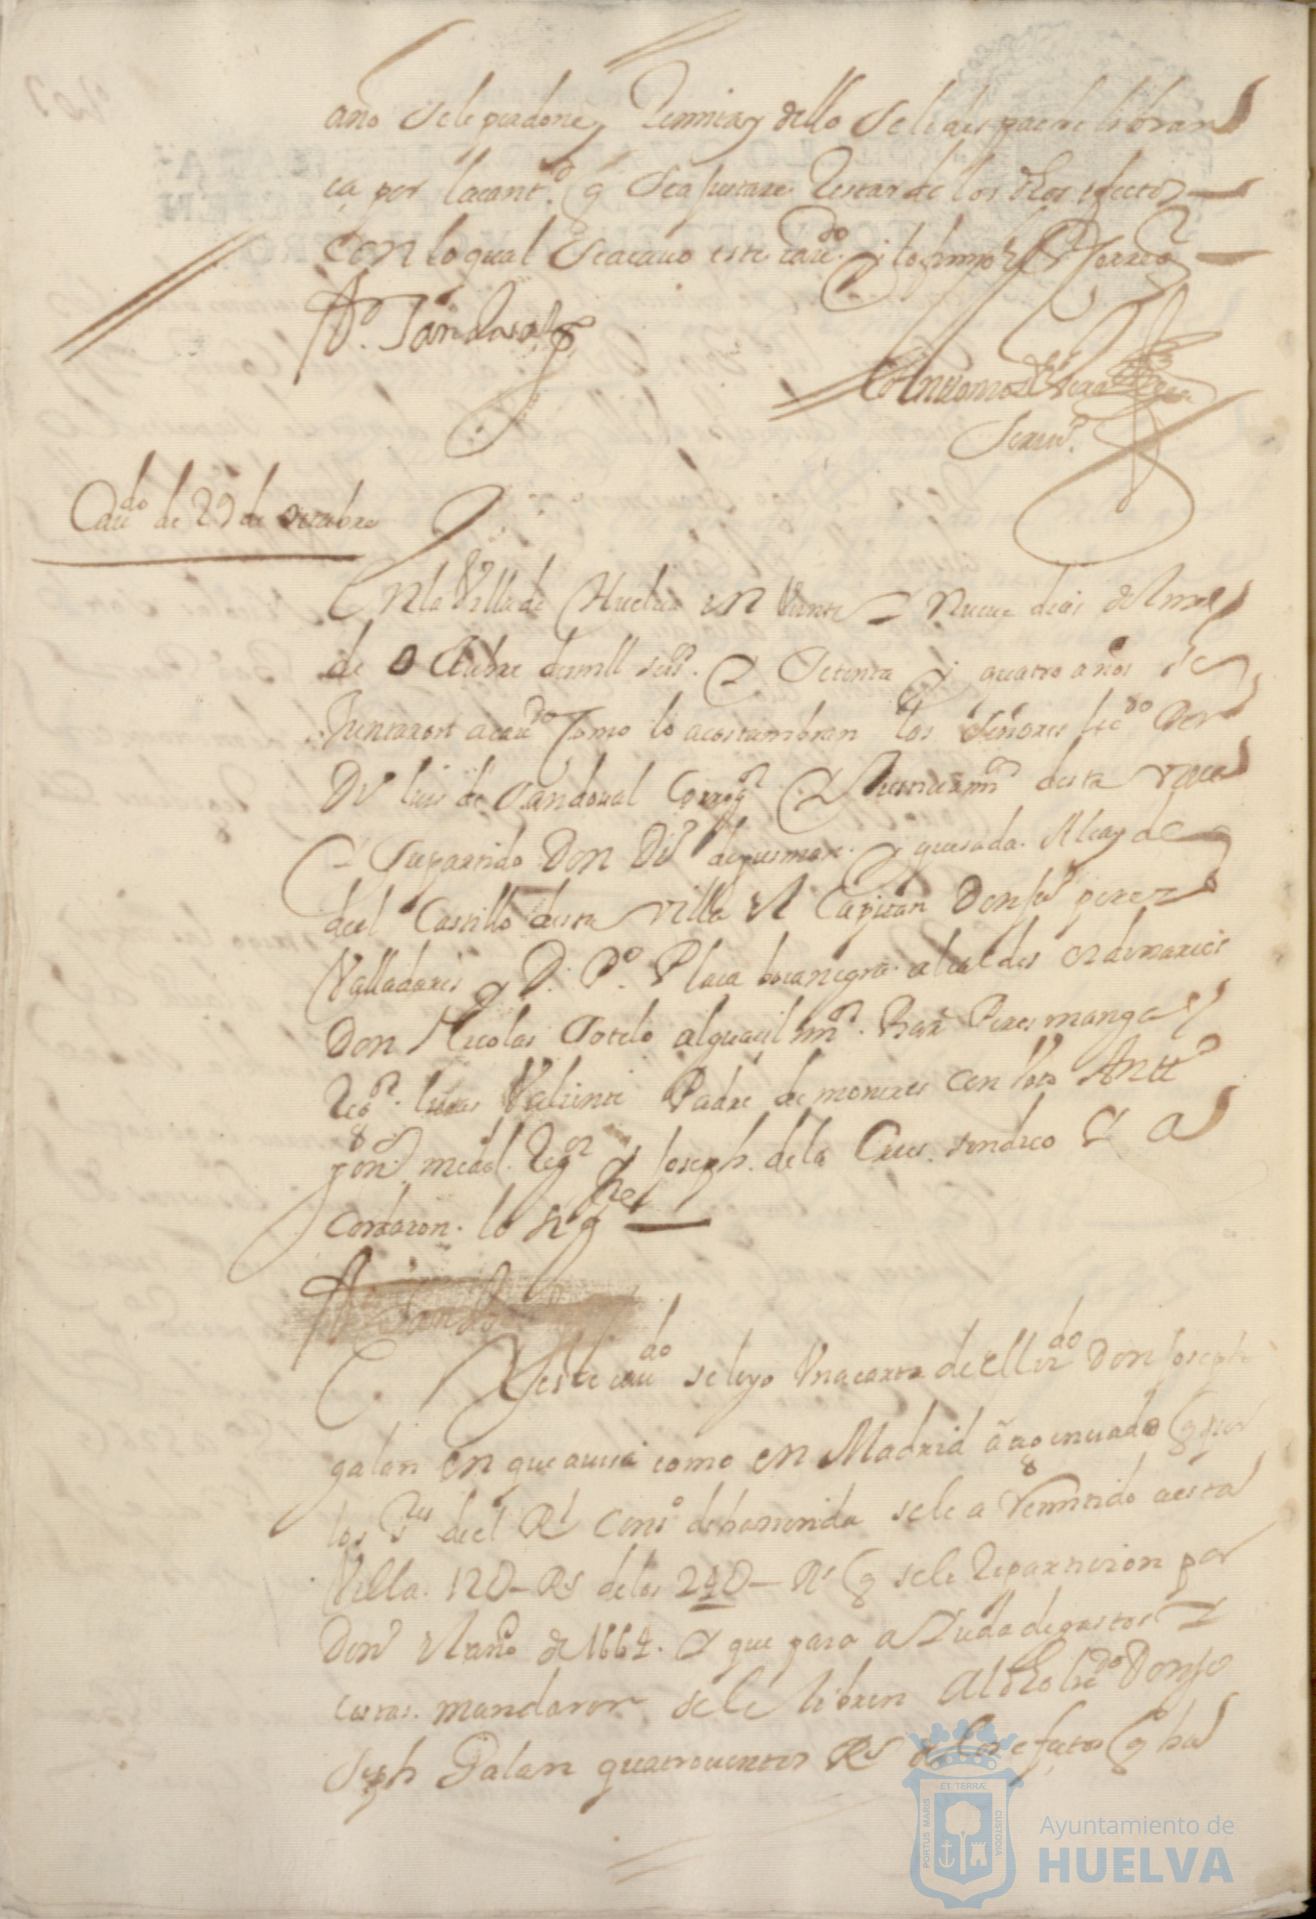 año se le perdone, Remira, y dello se le despache libran
ça por la cant.d q se ajustare restar de los dhos efectos
con lo qual se acavo este cau.do i lo firmo el S Corre.or
D.r Sandoval
Antonio
Scriu.o
Cau.do de 29 de octubre
En la Villa de Huelva en Veinte y Nueve dias del mes
de Octubre de mill seis.s y Setenta y quatro años se
Juntaron a cau.do Como lo acostumbran los Señores lic.do Don
D. luis de Sandoval Correg.or y Justicia m.or desta Villa
y su partido Don D.o de gusman y quesada Alcayde
del Castillo desta Villa el Capitan Don Ju.o perez
Valladares y D. P.o Plaça bocanegra alcaldes ordinarios
Don Nicolas Sotelo alguacil m.or Bar.me Peres manga
Reg.or lucas Valiente Padre de menores con Voto Ant.o
medel Reg.or y Joseph de la Cruz sindico y a
cordaron lo sig.te
D.r Sandoval
En este cau.do se leyo Una carta de el liz.do Don Joseph
galan en que avisa como en Madrid a negociado q por
los S.res del R.l Cons.o de hacienda se le a Remitido a esta
Villa 120 Rs de los 240 Rs q se le Repartieron por
Don.o el año de 1664 y que para ayuda de gastos y
costas mandaron se le libren Al dho liz.do Don Jo
seph Galan quatrocientos Rs de los efectos q ha
ET TERRÆ
PORTUS MARIS
CUSTODIA
Ayuntamiento de
HUELVA